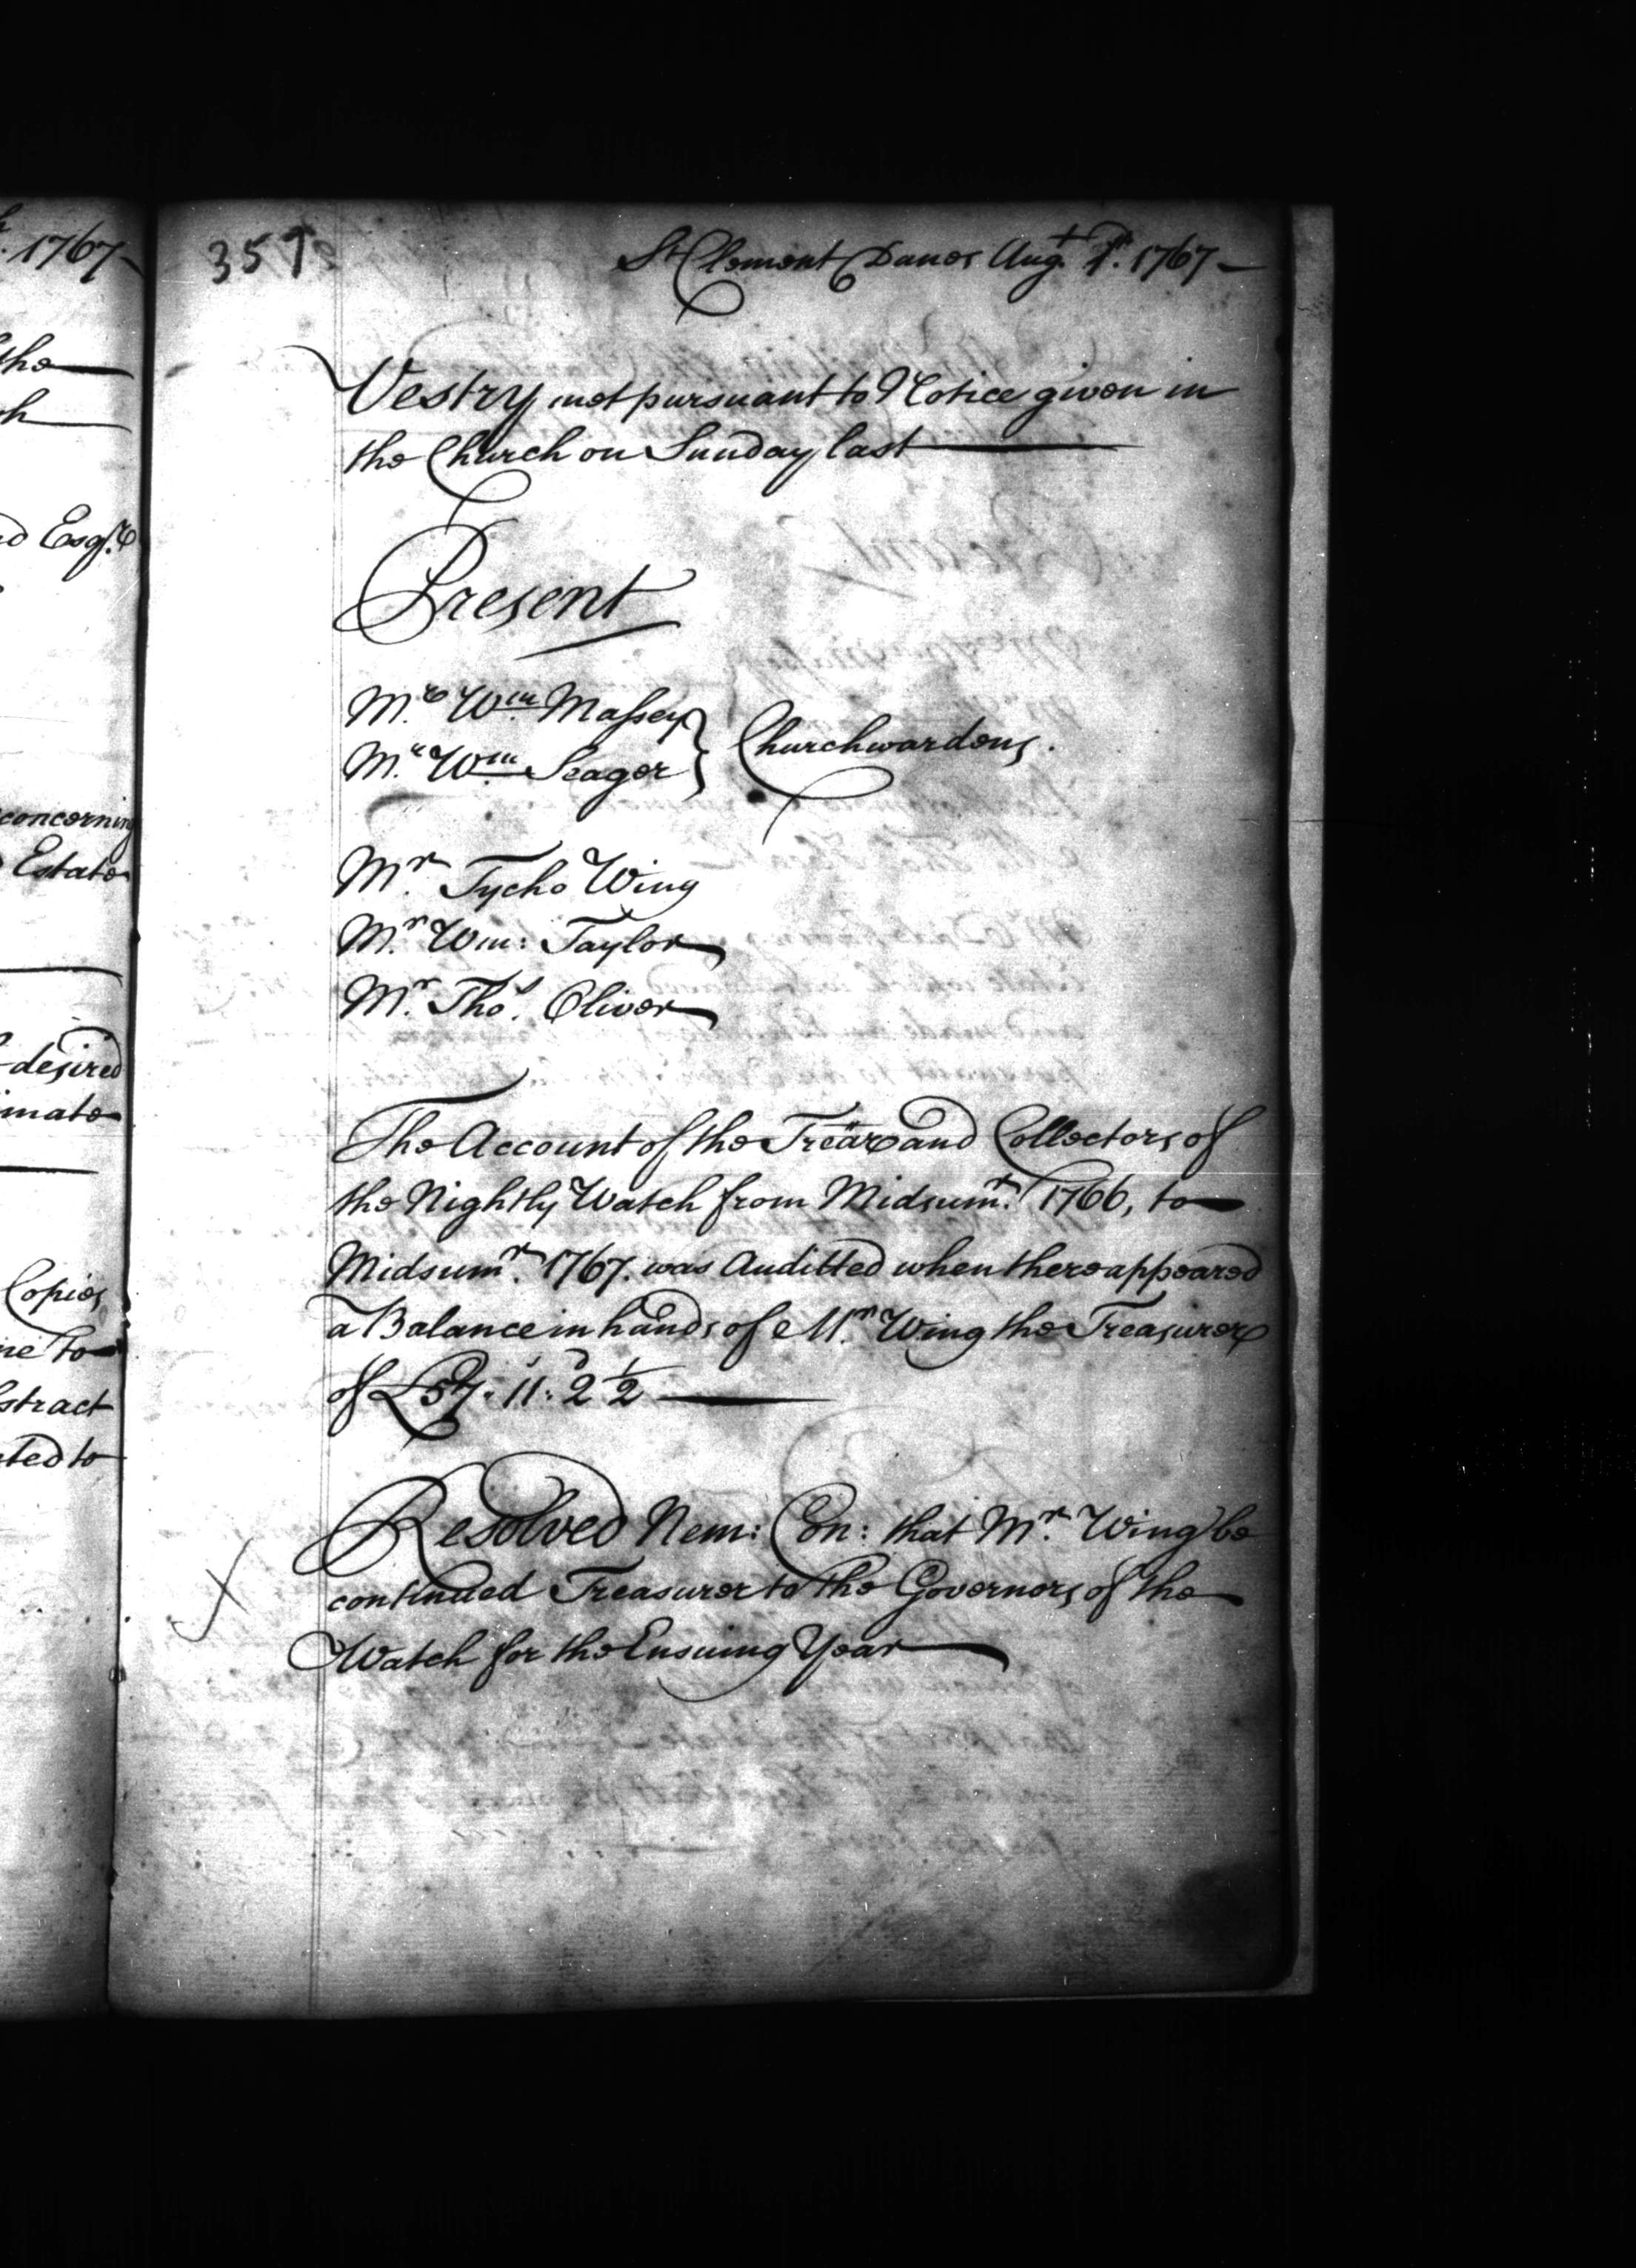 h. 1767
the
ch
d Esqr.
concerning
Estate
desired
imate
Copies
ne to
stract
ted to
357
St Clement Danes Augt. 1st. 1767
Vestry met pursuant to Notice given in
the Church on Sunday last
Present
Mr. Wm. Massey
Mr. Wm. Seager } Churchwardens.
Mr. Tycho Wing
Mr. Wm: Taylor
Mr. Thos. Oliver
The Account of the Trear and Collectors of
the Nightly Watch from Midsumr. 1766, to
Midsumr. 1767. was Auditted when there appeared
a Balance in hands of Mr. Wing the Treasurer
of £57: 11s: 2d ½
Resolved Nem: Con: that Mr. Wing be
continued Treasurer to the Governors of the
Watch for the Ensuing Year